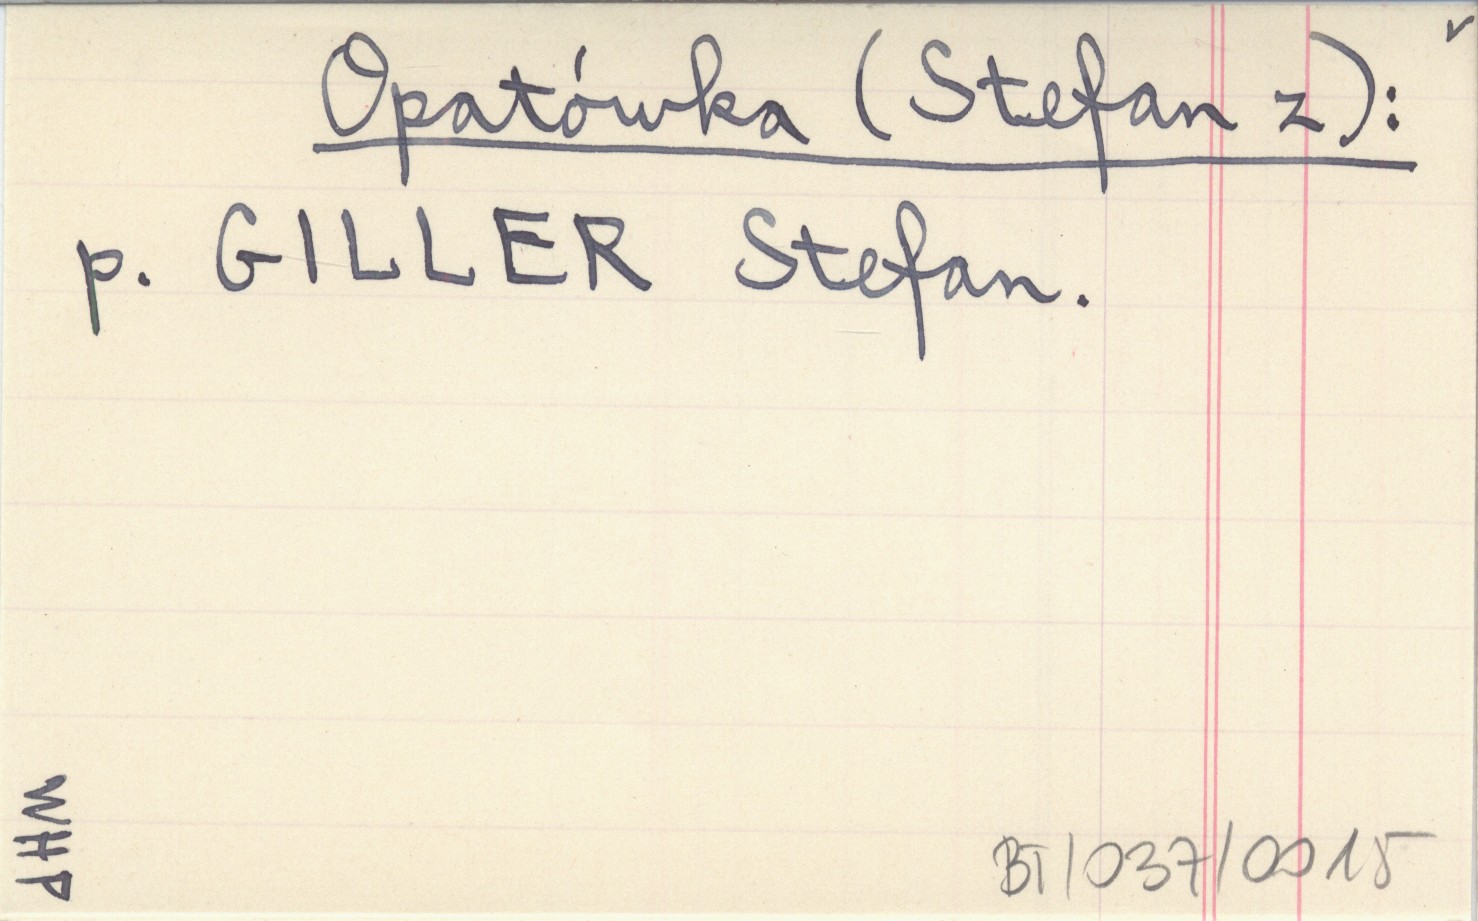 Opatówka (Stefan z):
p. GILLER Stefan.
WHP
BT/037/0015